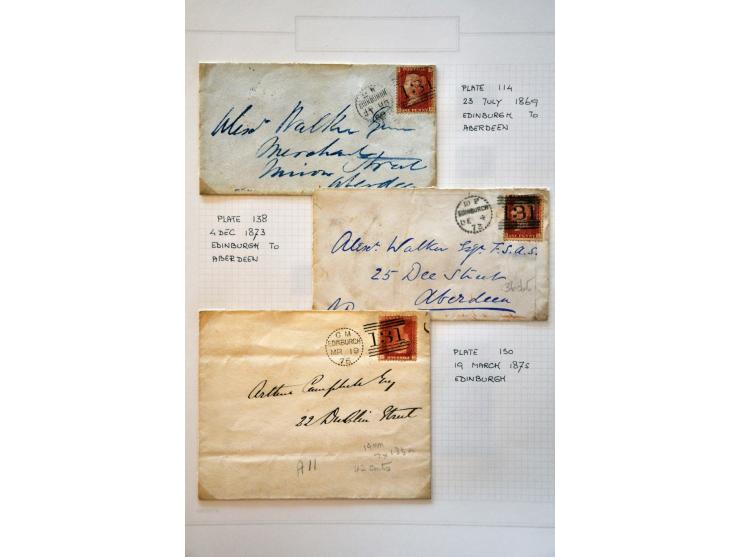 PLATE 114
23 JULY 1869
EDINBURGH TO
ABERDEEN
EDINBURGH
131
Alexr Walker
Merchant
Union Street
Aberdeen
PLATE 138
4 DEC 1873
EDINBURGH TO
ABERDEEN
EDINBURGH
DE 4
73
131
Alexr Walker Esqr F.S.A.S.
25 Dee Street
Aberdeen
G M
EDINBURGH
MR 19
75
131
Arthur Campbell Esq
22 Dublin Street
A11
PLATE 150
19 MARCH 1875
EDINBURGH